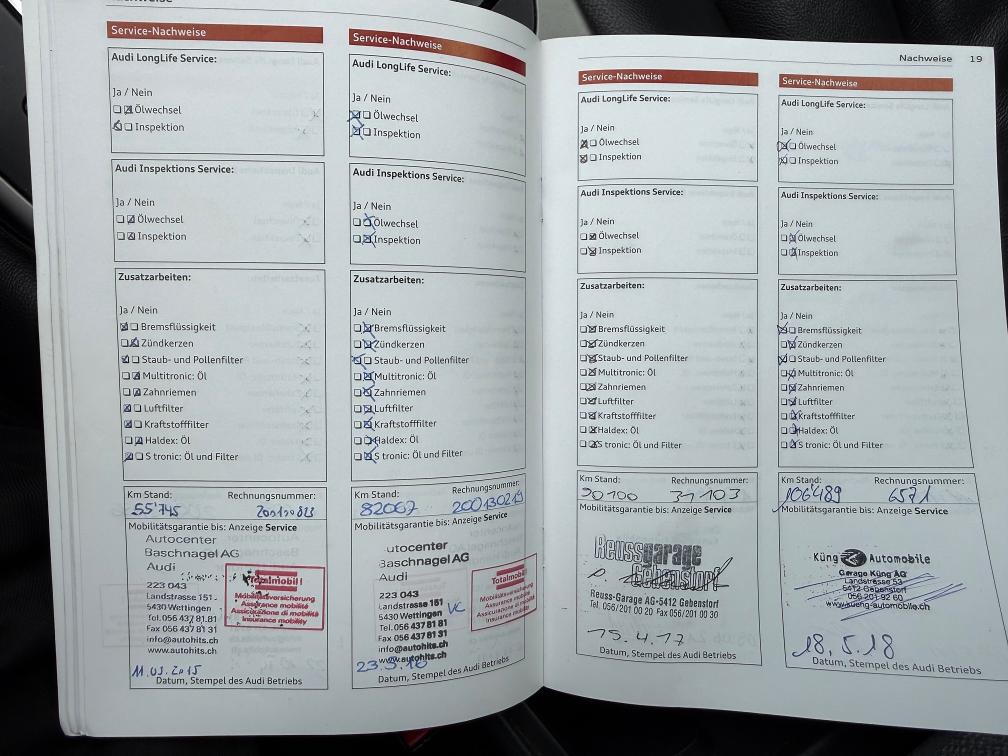 Service-Nachweise
Audi LongLife Service:
Ja / Nein
Ölwechsel
Inspektion
Audi Inspektions Service:
Ja / Nein
Ölwechsel
Inspektion
Zusatzarbeiten:
Ja / Nein
Bremsflüssigkeit
Zündkerzen
Staub- und Pollenfilter
Multitronic: Öl
Zahnriemen
Luftfilter
Kraftstofffilter
Haldex: Öl
S tronic: Öl und Filter
Km Stand: Rechnungsnummer:
55'745
Mobilitätsgarantie bis: Anzeige Service
Autocenter
Baschnagel AG
Audi
223 043
Landstrasse 151
5430 Wettingen
Tel. 056 437 81 81
Fax 056 437 81 31
info@autohits.ch
www.autohits.ch
Totalmobil!
Mobilitätsversicherung
Assurance mobilité
Assicurazione di mobilità
Insurance mobility
Datum, Stempel des Audi Betriebs
Service-Nachweise
Audi LongLife Service:
Ja / Nein
Ölwechsel
Inspektion
Audi Inspektions Service:
Ja / Nein
Ölwechsel
Inspektion
Zusatzarbeiten:
Ja / Nein
Bremsflüssigkeit
Zündkerzen
Staub- und Pollenfilter
Multitronic: Öl
Zahnriemen
Luftfilter
Kraftstofffilter
Haldex: Öl
S tronic: Öl und Filter
Km Stand: Rechnungsnummer:
82067 200130219
Mobilitätsgarantie bis: Anzeige Service
utocenter
Baschnagel AG
Audi
223 043
Landstrasse 151
5430 Wettingen
Tel. 056 437 81 81
Fax 056 437 81 31
info@autohits.ch
www.autohits.ch
Totalmobil!
Mobilitätsversicherung
Assurance mobilité
Assicurazione di mobilità
Insurance mobility
Datum, Stempel des Audi Betriebs
Nachweise 19
Service-Nachweise
Audi LongLife Service:
Ja / Nein
Ölwechsel
Inspektion
Audi Inspektions Service:
Ja / Nein
Ölwechsel
Inspektion
Zusatzarbeiten:
Ja / Nein
Bremsflüssigkeit
Zündkerzen
Staub- und Pollenfilter
Multitronic: Öl
Zahnriemen
Luftfilter
Kraftstofffilter
Haldex: Öl
S tronic: Öl und Filter
Km Stand: Rechnungsnummer:
90100 31103
Mobilitätsgarantie bis: Anzeige Service
Reussgarage
Gebenstorf
Reuss-Garage AG-5412 Gebenstorf
Tel. 056/201 00 20 Fax 056/201 00 30
15.4.17
Datum, Stempel des Audi Betriebs
Service-Nachweise
Audi LongLife Service:
Ja / Nein
Ölwechsel
Inspektion
Audi Inspektions Service:
Ja / Nein
Ölwechsel
Inspektion
Zusatzarbeiten:
Ja / Nein
Bremsflüssigkeit
Zündkerzen
Staub- und Pollenfilter
Multitronic: Öl
Zahnriemen
Luftfilter
Kraftstofffilter
Haldex: Öl
S tronic: Öl und Filter
Km Stand: Rechnungsnummer:
106'489 6571
Mobilitätsgarantie bis: Anzeige Service
Küng Automobile
Garage Küng AG
Landstrasse 53
5412 Gebenstorf
www.kueng-automobile.ch
18.5.18
Datum, Stempel des Audi Betriebs